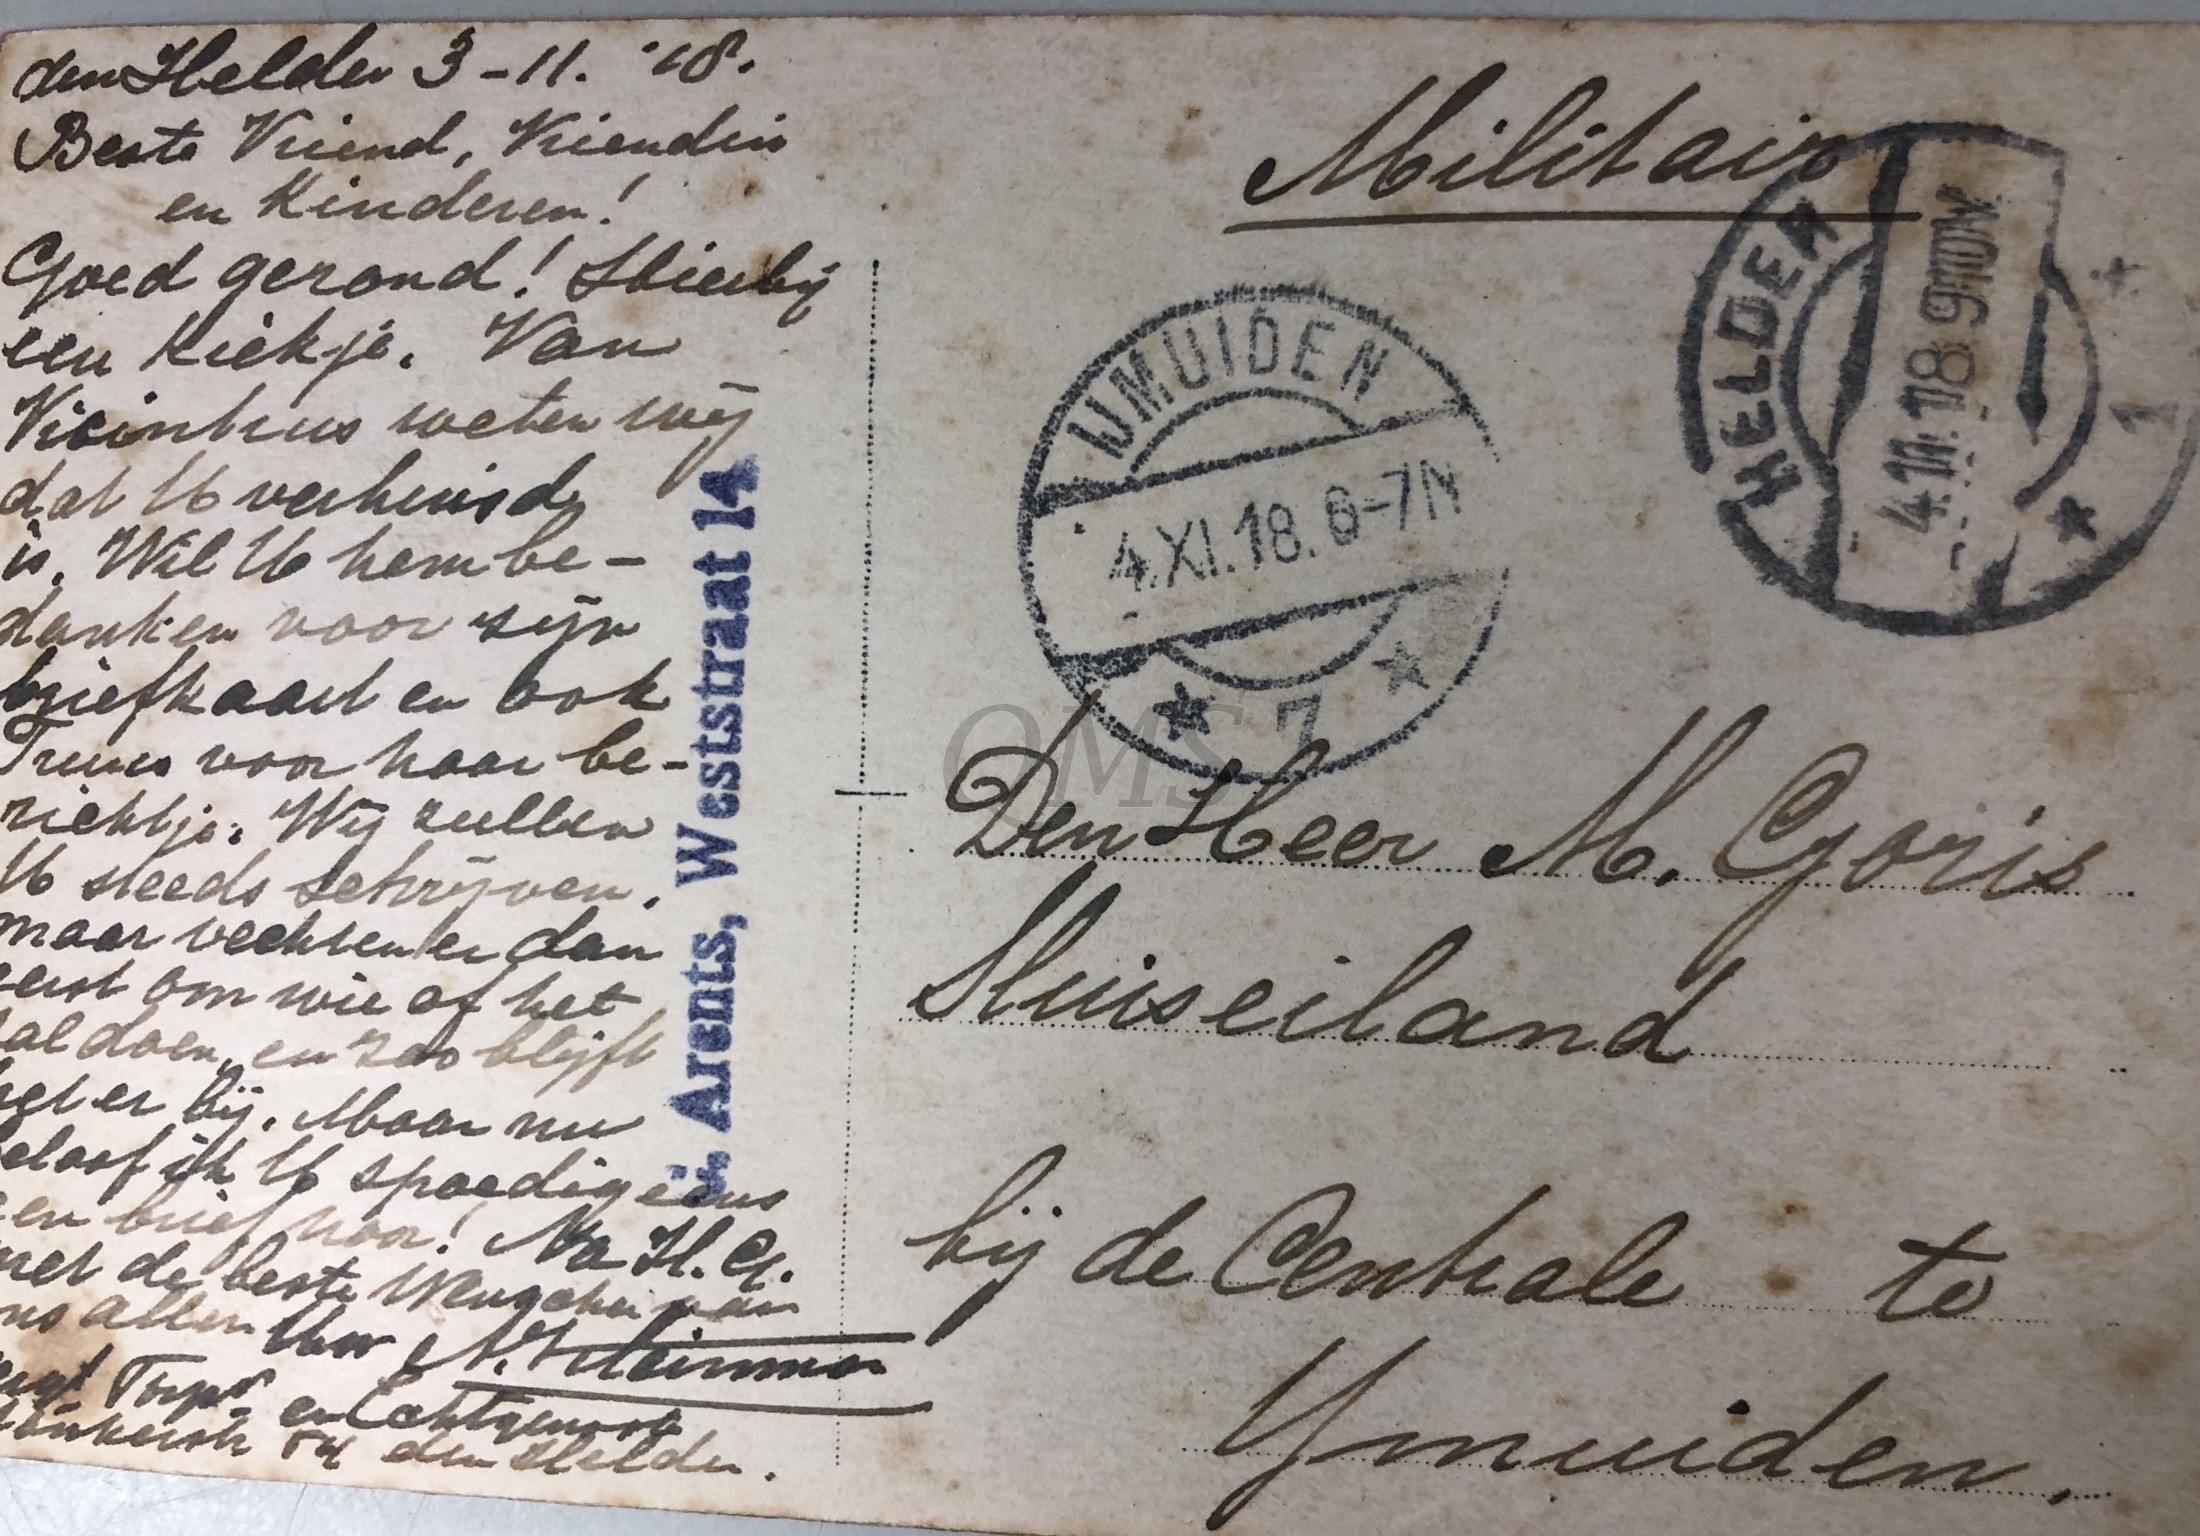 den Helder 3-11. '18.
Beste Vriend, Vriendin
en Kinderen!
Goed gezond! Hierbij
een Kiekje. Van
weten wij
dat U verhuisd
is. Wil U hem be-
danken voor zijn
briefkaart en ook
Truus voor haar be-
richtje. Wij zullen
U steeds schrijven.
maar vechten er dan
eerst om wie of het
zal doen, en zoo blijft
het er bij. Maar nu
beloof ik U spoedig eens
een brief hoor! Na H. G.
met de beste Wenschen van
ons allen Uw
en Echtgenoote
den Helder.
Arents, Weststraat 14
Militair
HELDER
4.11.18 9
1
IJMUIDEN
4.XI.18. 6-7N
7
QMS
Den Heer M. Goris
Sluiseiland
bij de Centrale te
Ymuiden.